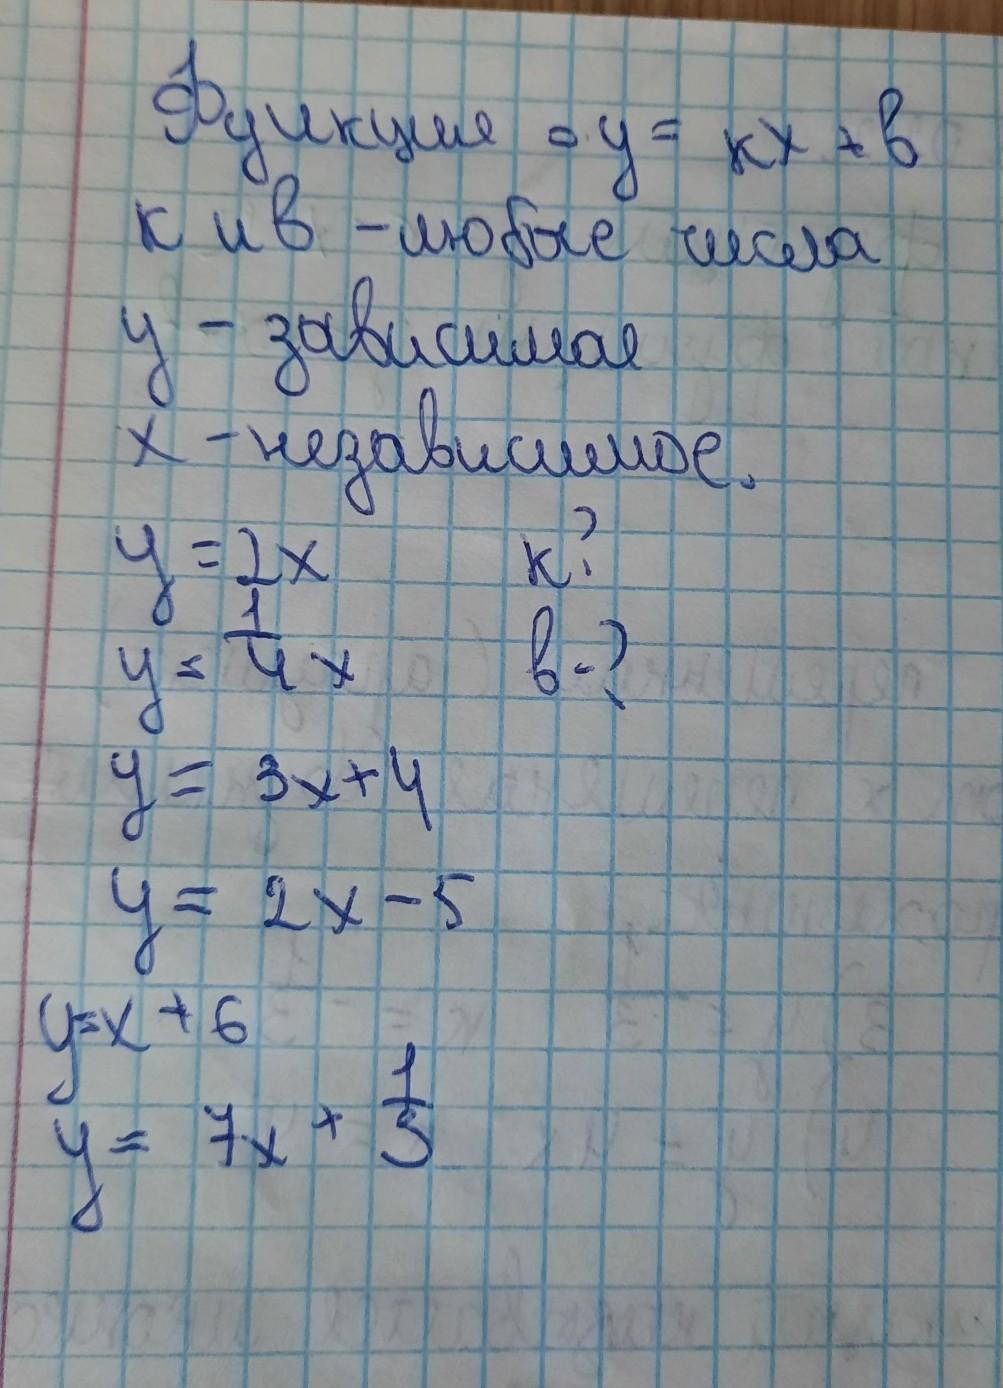 Функция = y = кx + в
к и в - любые числа
y - зависимая
x - независимое.
y = 2x к?
y = 1/4 x в - ?
y = 3x + 4
y = 2x - 5
y = x + 6
y = 7x + 1/3